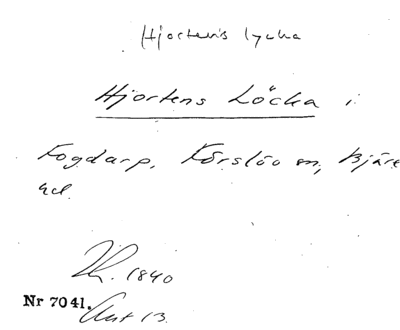 Hjortens lycka
Hjortens Löcka i
Fogdarp, Förslöv sn, Bjäre
hd.
1840
Nr 7041. Akt 13.